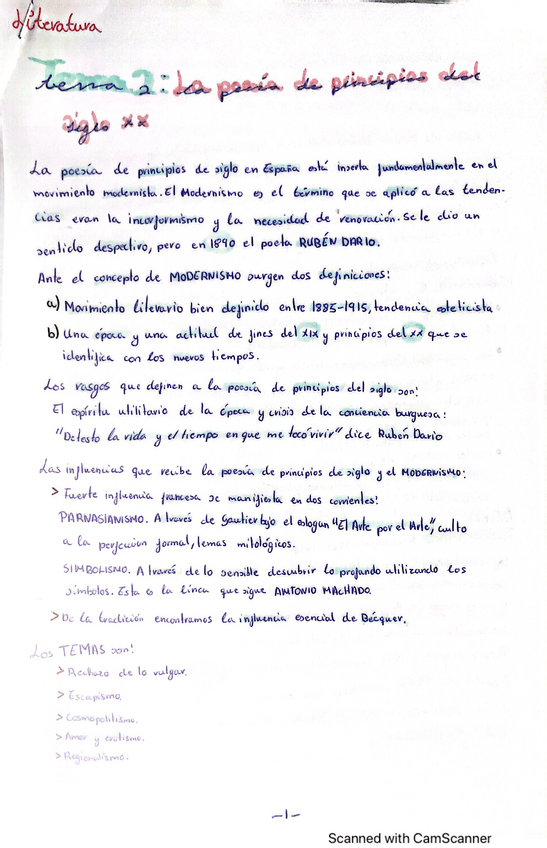 Literatura
Tema 2: La poesía de principios del
siglo XX
La poesía de principios de siglo en España está inserta fundamentalmente en el
movimiento modernista. El Modernismo es el término que se aplicó a las tenden-
cias eran la inconformismo y la necesidad de renovación. Se le dio un
sentido despectivo, pero en 1890 el poeta RUBÉN DARIO.
Ante el concepto de MODERNISMO surgen dos definiciones:
a) Movimiento literario bien definido entre 1885-1915, tendencia esteticista.
b) Una época y una actitud de fines del XIX y principios del XX que se
identifica con los nuevos tiempos.
Los rasgos que definen a la poesía de principios del siglo son:
El espíritu utilitario de la época y crisis de la conciencia burguesa:
"Detesto la vida y el tiempo en que me tocó vivir" dice Rubén Dario
Las influencias que recibe la poesía de principios de siglo y el MODERNISMO:
> Fuerte influencia francesa se manifiesta en dos corrientes:
PARNASIANISMO. A través de Gautier bajo el eslogan "El Arte por el Arte", culto
a la perfección formal, temas mitológicos.
SIMBOLISMO. A través de lo sensible descubrir lo profundo utilizando los
símbolos. Esta es la línea que sigue ANTONIO MACHADO.
> De la tradición encontramos la influencia esencial de Bécquer.
Los TEMAS son:
> Rechazo de lo vulgar.
> Escapismo.
> Cosmopolitismo.
> Amor y erotismo.
> Regionalismo.
-1-
Scanned with CamScanner